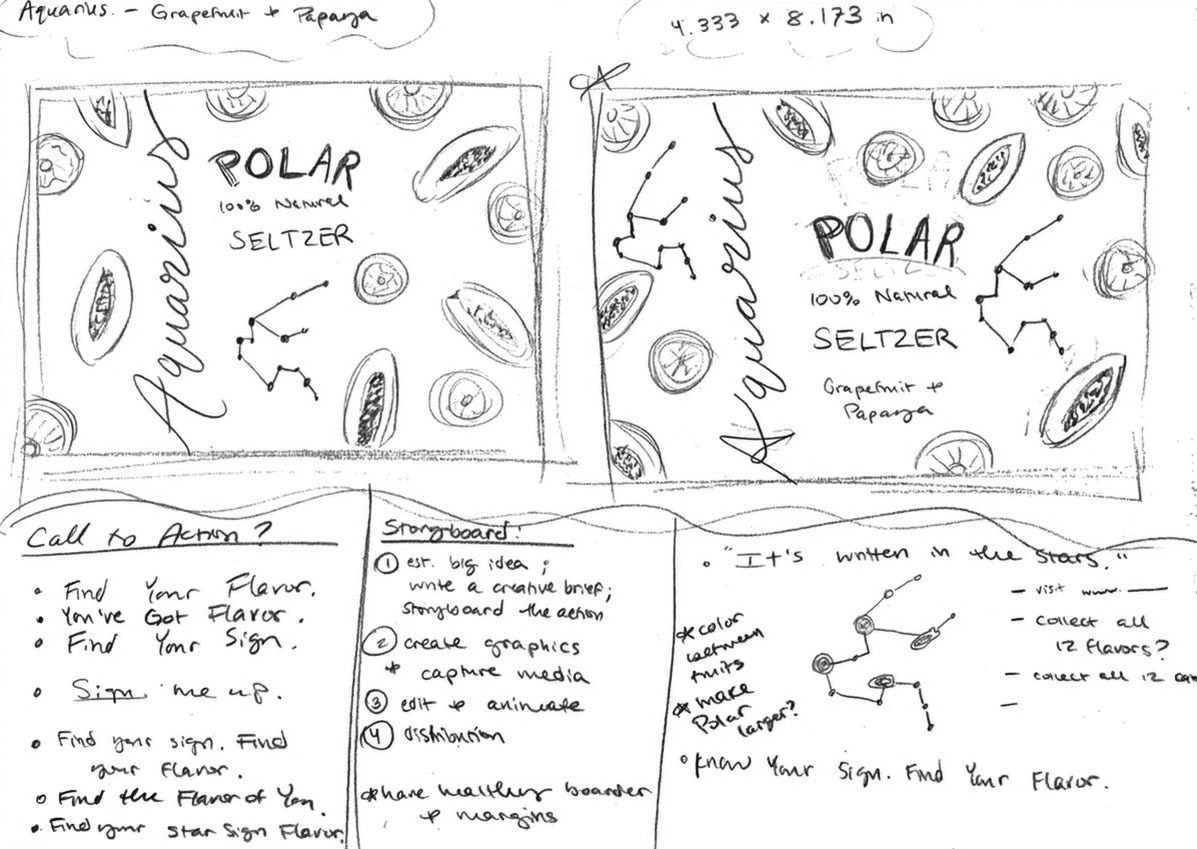 Aquarius. - Grapefruit + Papaya
4.333 x 8.173 in
Aquarius
POLAR
100% Natural
SELTZER
Aquarius
POLAR
100% Natural
SELTZER
Grapefruit +
Papaya
Call to Action?
• Find Your Flavor.
• You've Got Flavor.
• Find Your Sign.
• Sign me up.
• Find your sign. Find
your flavor.
• Find the Flavor of You.
• Find your star sign Flavor.
Storyboard:
1 est. big idea;
write a creative brief;
storyboard the action
2 create graphics
+ capture media
3 edit + animate
4 distribution
* have healthy boarder
+ margins
• "It's written in the stars."
* color
between
fruits
* make
Polar
larger?
- visit www.
- collect all
12 flavors?
- collect all 12 can
-
• Know Your Sign. Find Your Flavor.